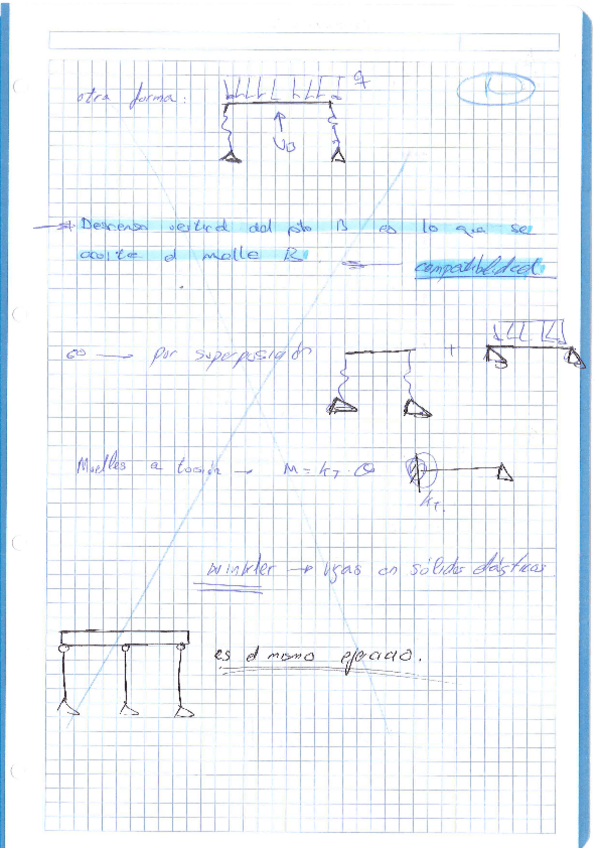 otra forma:
q
VB
→ Descenso vertical del pto B es lo que se
acorta el muelle B.
compatibilidad
→ por superposición +
Muelles a torsión → M = kT · θ
kT.
winkler → vigas en sólidos elásticos
es el mismo ejercicio.